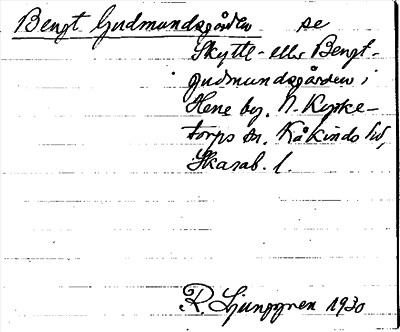 Bengt Gudmundsgården se
Skytte- eller Bengt-
gudmundsgården i
Hene by, N. Kyrke-
torps sn. Kåkinds hd,
Skarab. l.
R. Ljunggren 1930